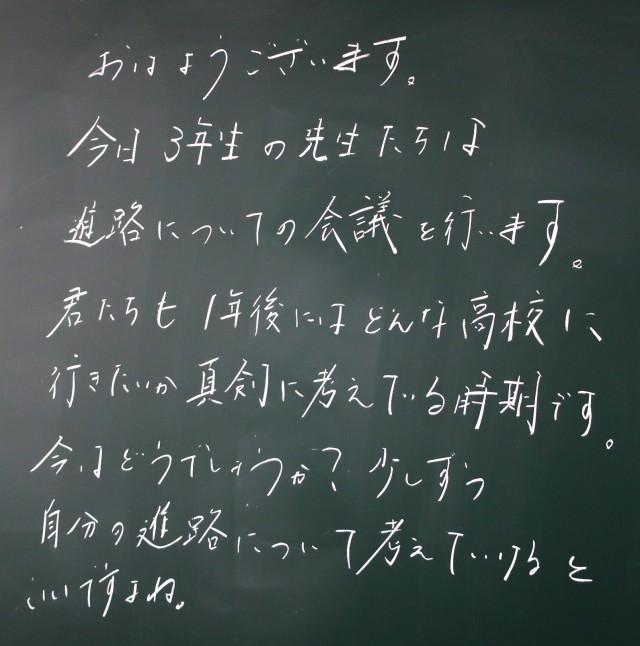 おはようございます。
今日3年生の先生たちは
進路についての会議を行います。
君たちも1年後にはどんな高校に、
行きたいか真剣に考えている時期です。
今はどうでしょうか?少しずつ
自分の進路について考えていけると
いいですよね。